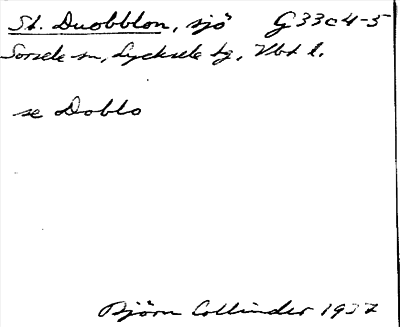 St. Duobblon, sjö G33c4-5
Sorsele sn, Lycksele tg, Vbt l.
se Doblo
Björn Collinder 1937